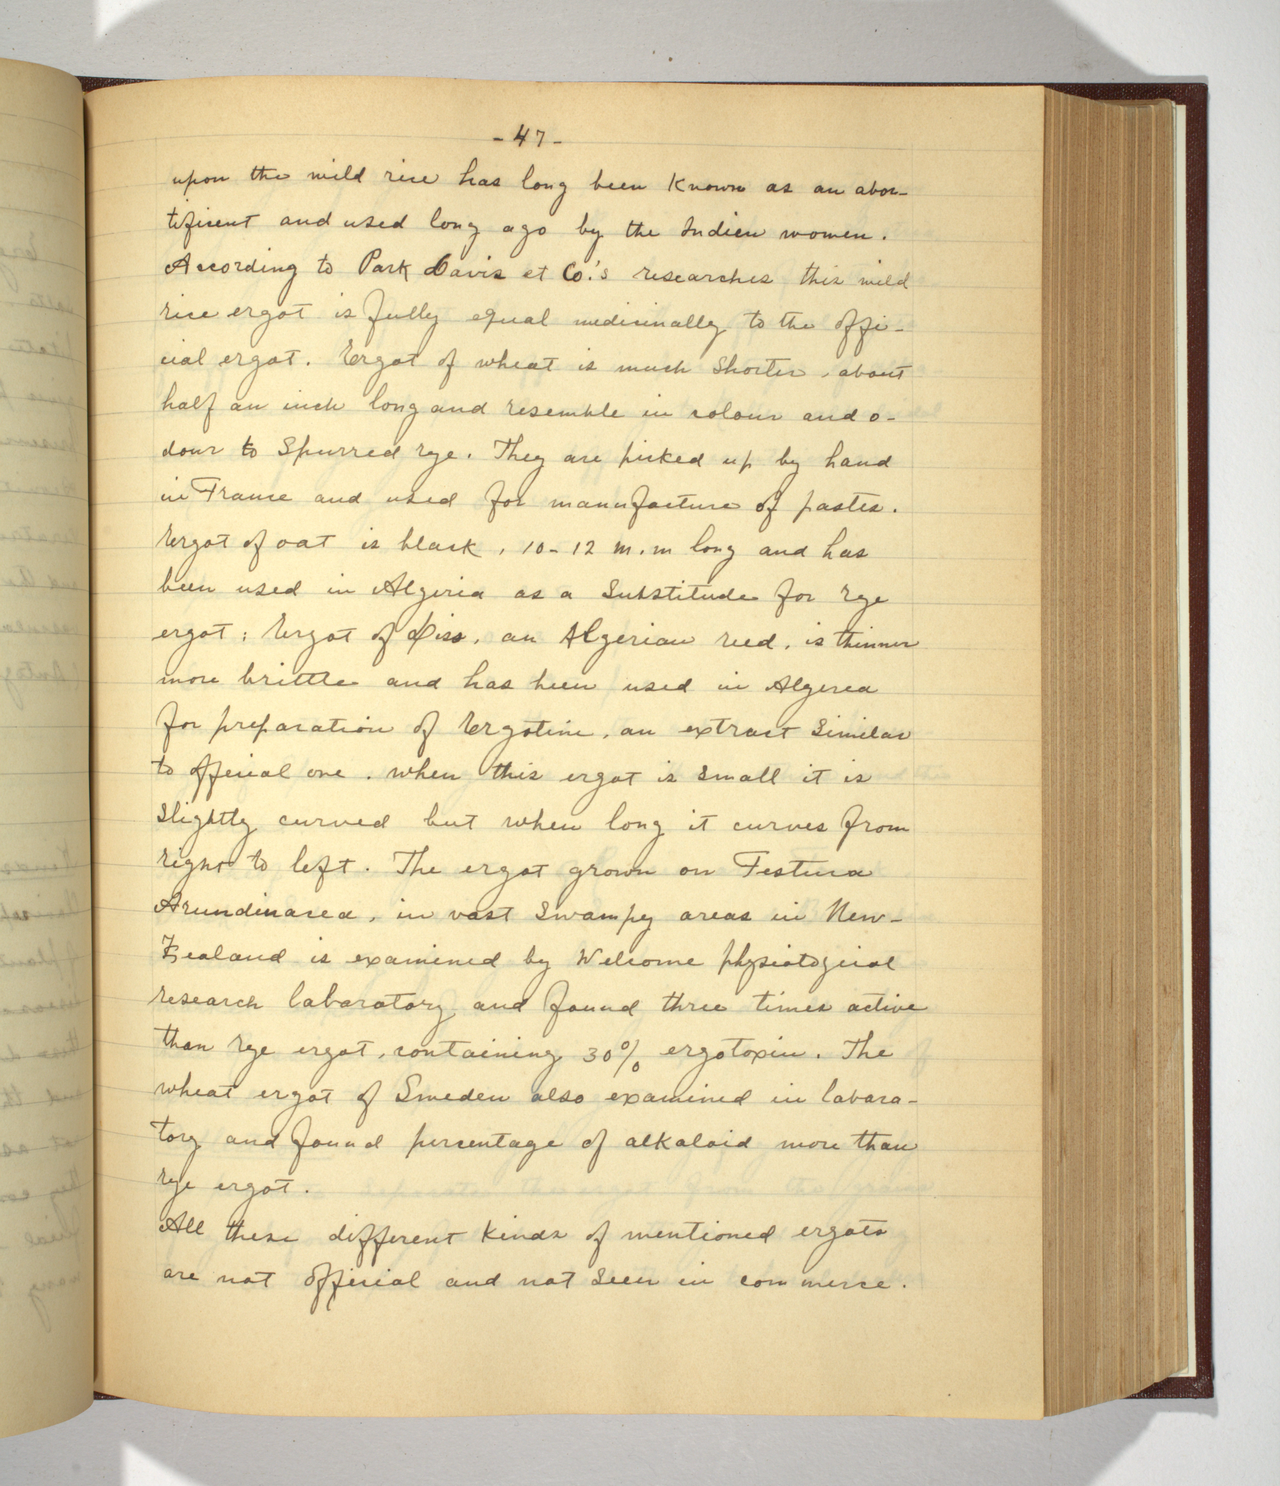 - 47 -
upon the wild rice has long been known as an abor-
tificent and used long ago by the Indien women.
According to Park Davis et Co.'s researches this wild
rice ergot is fully equal medicinally to the offi-
cial ergot. Ergot of wheat is much Shorter, about
half an inch long and resemble in colour and o-
dour to Spurred rye. They are picked up by hand
in France and used for manufacture of pastes.
Ergot of oat is black, 10-12 m.m long and has
been used in Algeria as a Substitude for rye
ergot; Ergot of Diss, an Algerian reed, is thinner
more brittle and has been used in Algerea
for preparation of Ergotine, an extract Similar
to official one. When this ergot is Small it is
Slightly curved but when long it curves from
right to left. The ergot grown on Festuca
Arundinacea, in vast Swampy areas in New-
Zealand is examined by Welcome physiological
research labaratory and found three times active
than rye ergot, containing 30% ergotoxin. The
wheat ergot of Sweden also examined in labara-
tory and found percentage of alkaloid more than
rye ergot.
All these different kinds of mentioned ergots
are not official and not Seen in commerce.